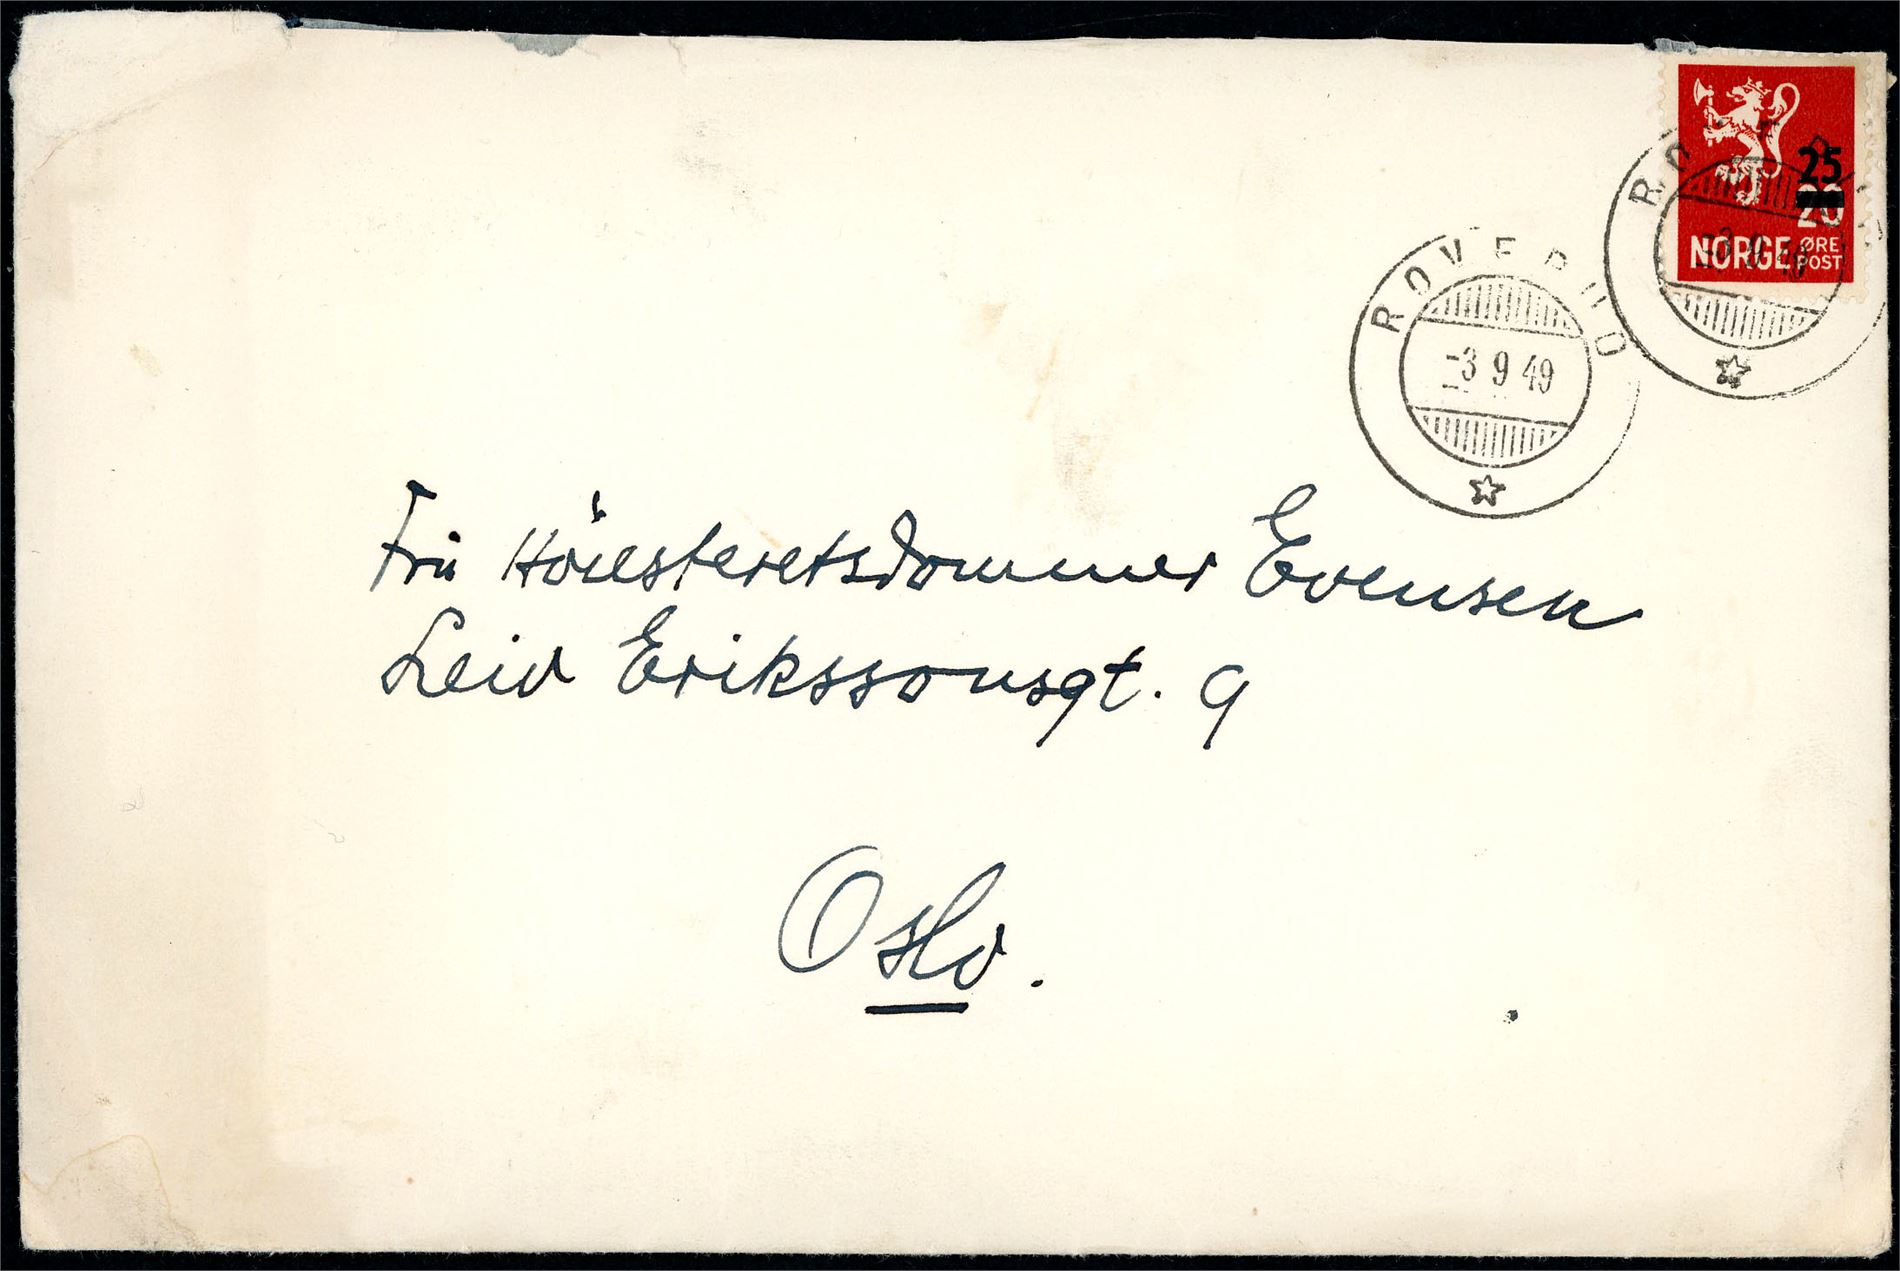 25
20
NORGE ØRE
POST
ROVERUD
-3 9 49
ROVERUD
-3 9 49
Fru Höiesteretsdommer Evensen
Leiv Erikssonsgt. 9
Oslo.